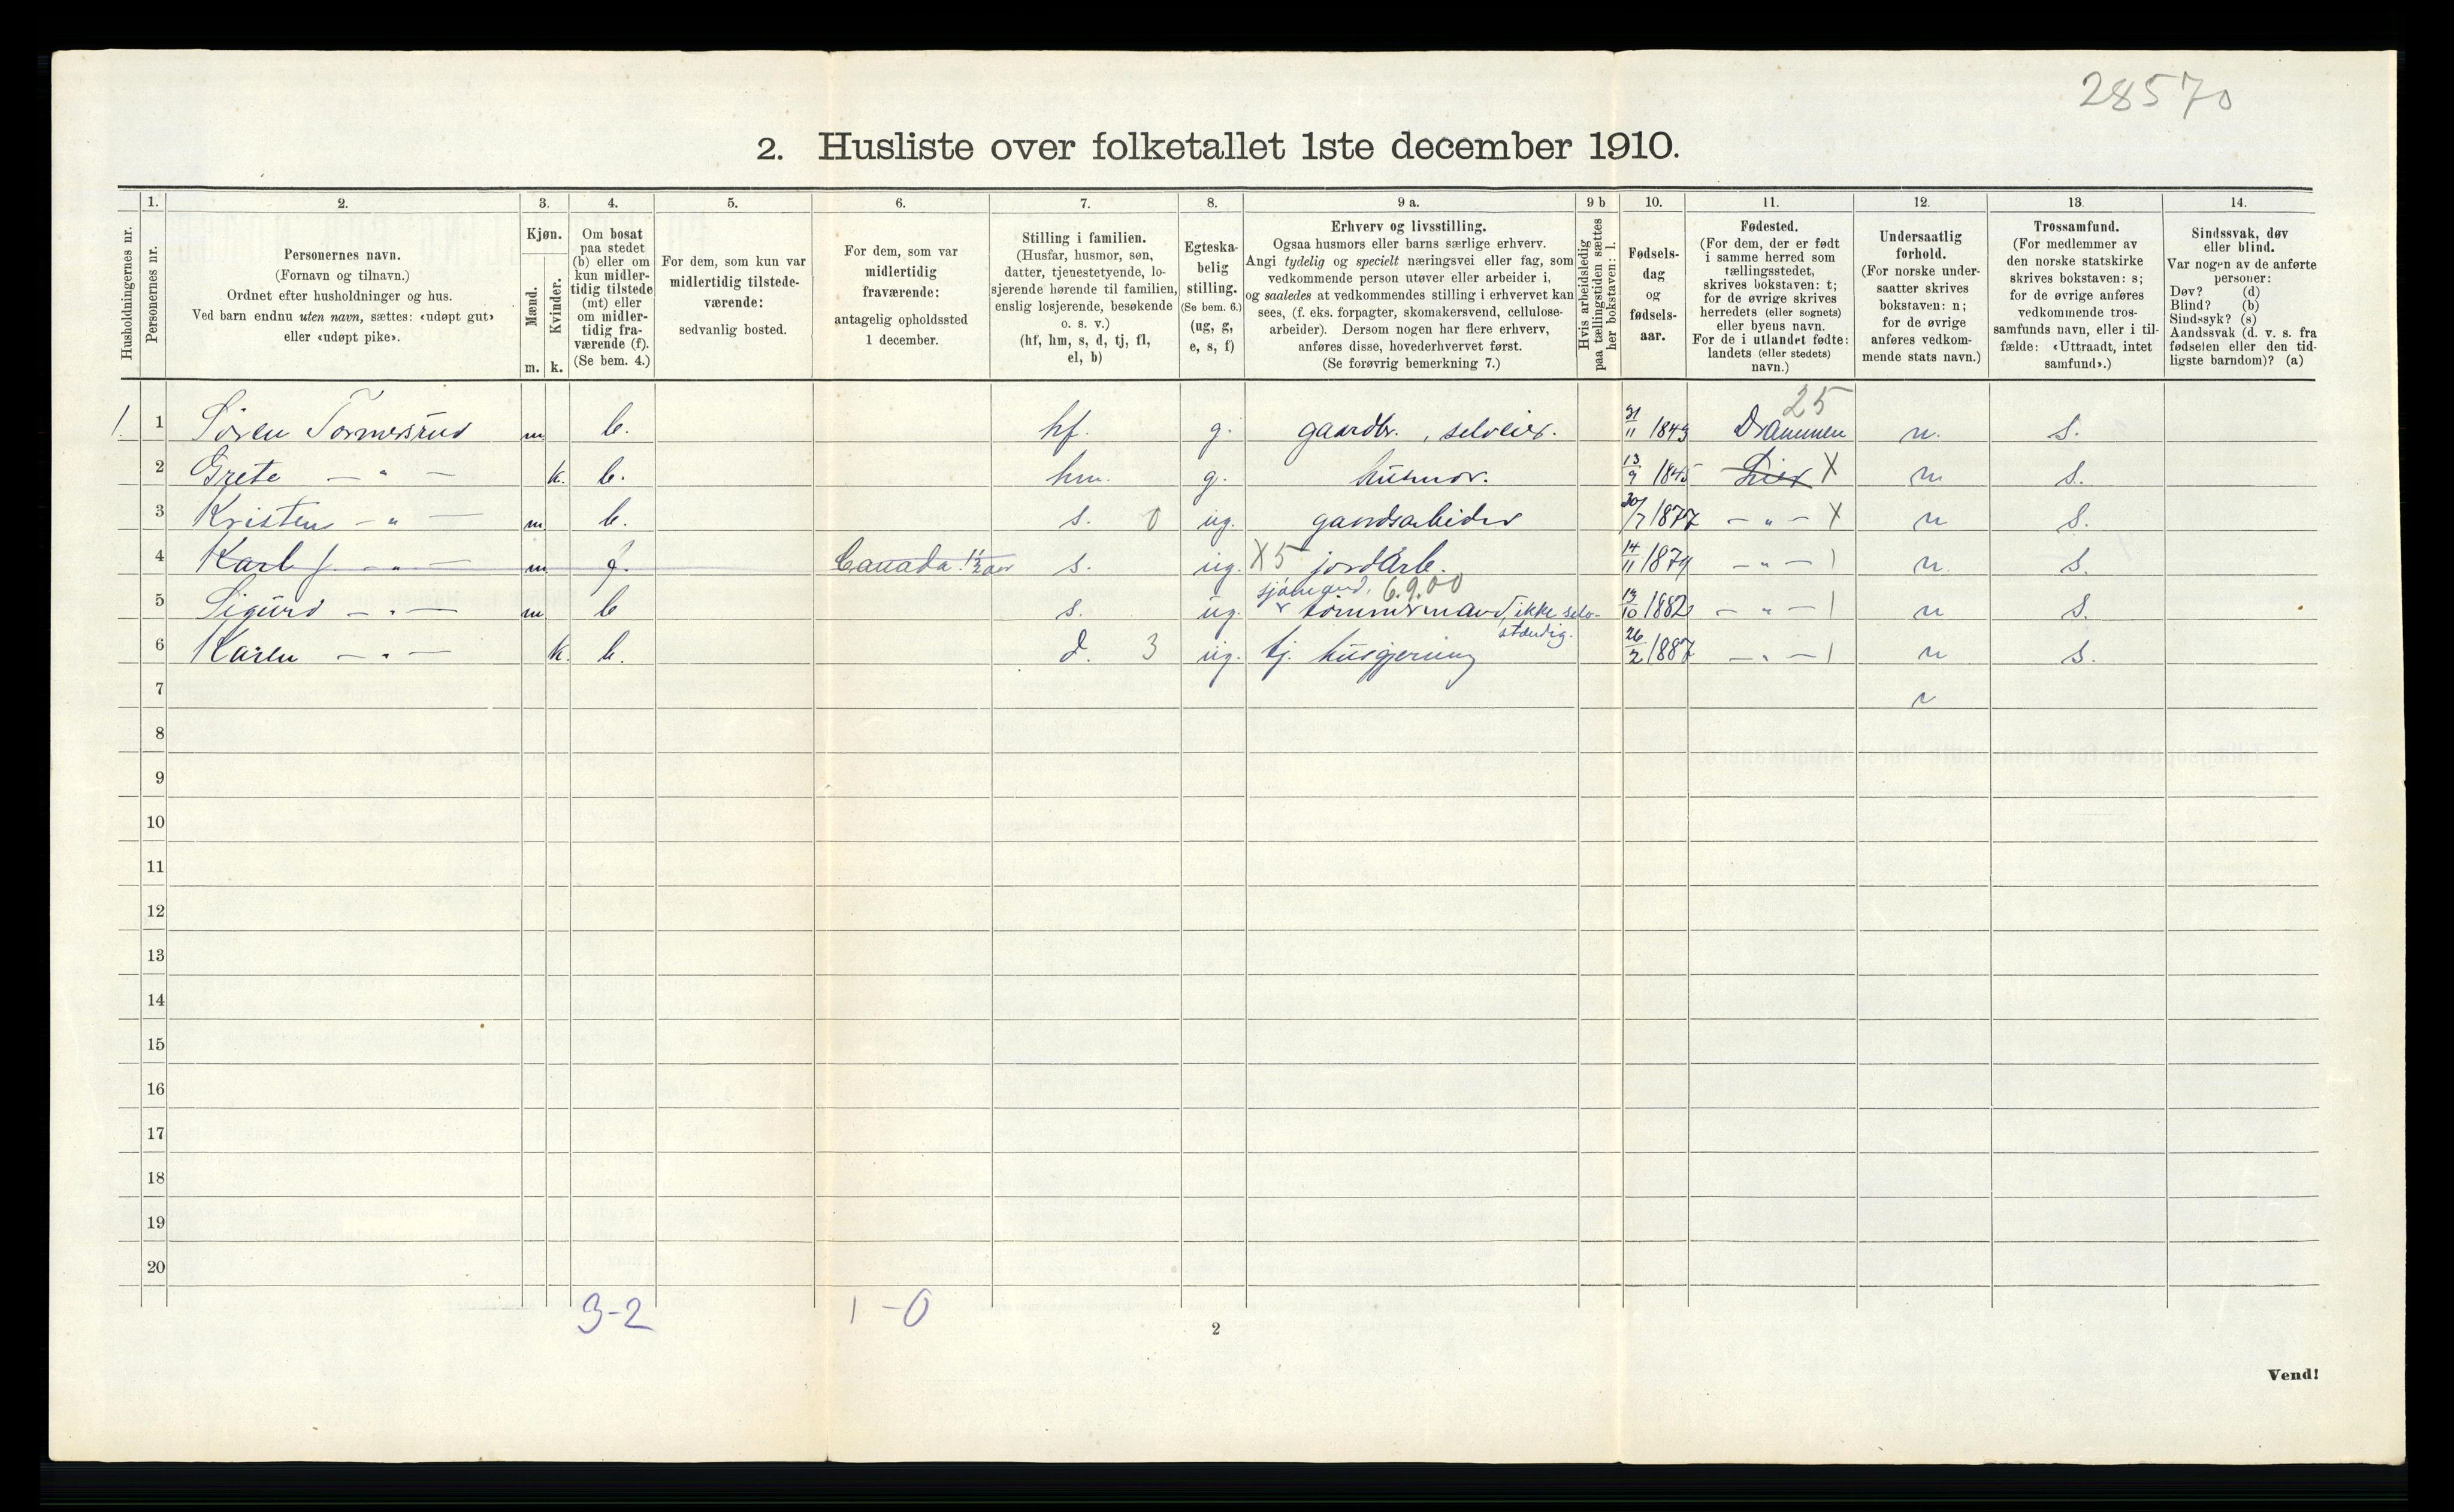 28570
2. Husliste over folketallet 1ste december 1910.
Husholdningernes nr.
1. Personernes nr.
2. Personernes navn.
(Fornavn og tilnavn.)
Ordnet efter husholdninger og hus.
Ved barn endnu uten navn, sættes: «udøpt gut»
eller «udøpt pike».
3. Kjøn.
Mænd. m.
Kvinder. k.
4. Om bosat
paa stedet
(b) eller om
kun midler-
tidig tilstede
(mt) eller
om midler-
tidig fra-
værende (f).
(Se bem. 4.)
5. For dem, som kun var
midlertidig tilstede-
værende:
sedvanlig bosted.
6. For dem, som var
midlertidig
fraværende:
antagelig opholdssted
1 december.
7. Stilling i familien.
(Husfar, husmor, søn,
datter, tjenestetyende, lo-
sjerende hørende til familien,
enslig losjerende, besøkende
o. s. v.)
(hf, hm, s, d, tj, fl,
el, b)
8. Egteska-
belig
stilling.
(Se bem. 6.)
(ug, g,
e, s, f)
9 a. Erhverv og livsstilling.
Ogsaa husmors eller barns særlige erhverv.
Angi tydelig og specielt næringsvei eller fag, som
vedkommende person utøver eller arbeider i,
og saaledes at vedkommendes stilling i erhvervet kan
sees, (f. eks. forpagter, skomakersvend, cellulose-
arbeider). Dersom nogen har flere erhverv,
anføres disse, hovederhvervet først.
(Se forøvrig bemerkning 7.)
9 b Hvis arbeidsledig
paa tællingstiden sættes
her bokstaven: l.
10. Fødsels-
dag
og
fødsels-
aar.
11. Fødested.
(For dem, der er født
i samme herred som
tællingsstedet,
skrives bokstaven: t;
for de øvrige skrives
herredets (eller sognets)
eller byens navn.
For de i utlandet fødte:
landets (eller stedets)
navn.)
12. Undersaatlig
forhold.
(For norske under-
saatter skrives
bokstaven: n;
for de øvrige
anføres vedkom-
mende stats navn.)
13. Trossamfund.
(For medlemmer av
den norske statskirke
skrives bokstaven: s;
for de øvrige anføres
vedkommende tros-
samfunds navn, eller i til-
fælde: «Uttraadt, intet
samfund».)
14. Sindssvak, døv
eller blind.
Var nogen av de anførte
personer:
Døv? (d)
Blind? (b)
Sindssyk? (s)
Aandssvak (d. v. s. fra
fødselen eller den tid-
ligste barndom)? (a)
25
1. 1 Søren Tormersrud m. b. hf. g. gaardbr., selveier. 1843 Drammen n. s.
2 Grete - " - k. b. hm. g. husmor. 13/9 1845 Lier X n s.
3 Kristen - " - m. b. s. 0 ug. gaardsarbeider 30/7 1877 - " - X n s.
4 Karl J. - " - m. f. Canada 1 1/2 aar s. ug. X5 jordarb. 14/11 1879 - " - 1 n. s.
sjømand, 6.9.00
5 Sigurd - " - m. b s. ug. x tømmermand, ikke selv- 13/10 1882 - " - 1 n s.
stændig.
6 Karen - " - k. b. d. 3 ug. tj. husgjerning 26/2 1887 - " - 1 n s.
7 n
8
9
10
11
12
13
14
15
16
17
18
19
20
3-2 1-0
2
Vend!